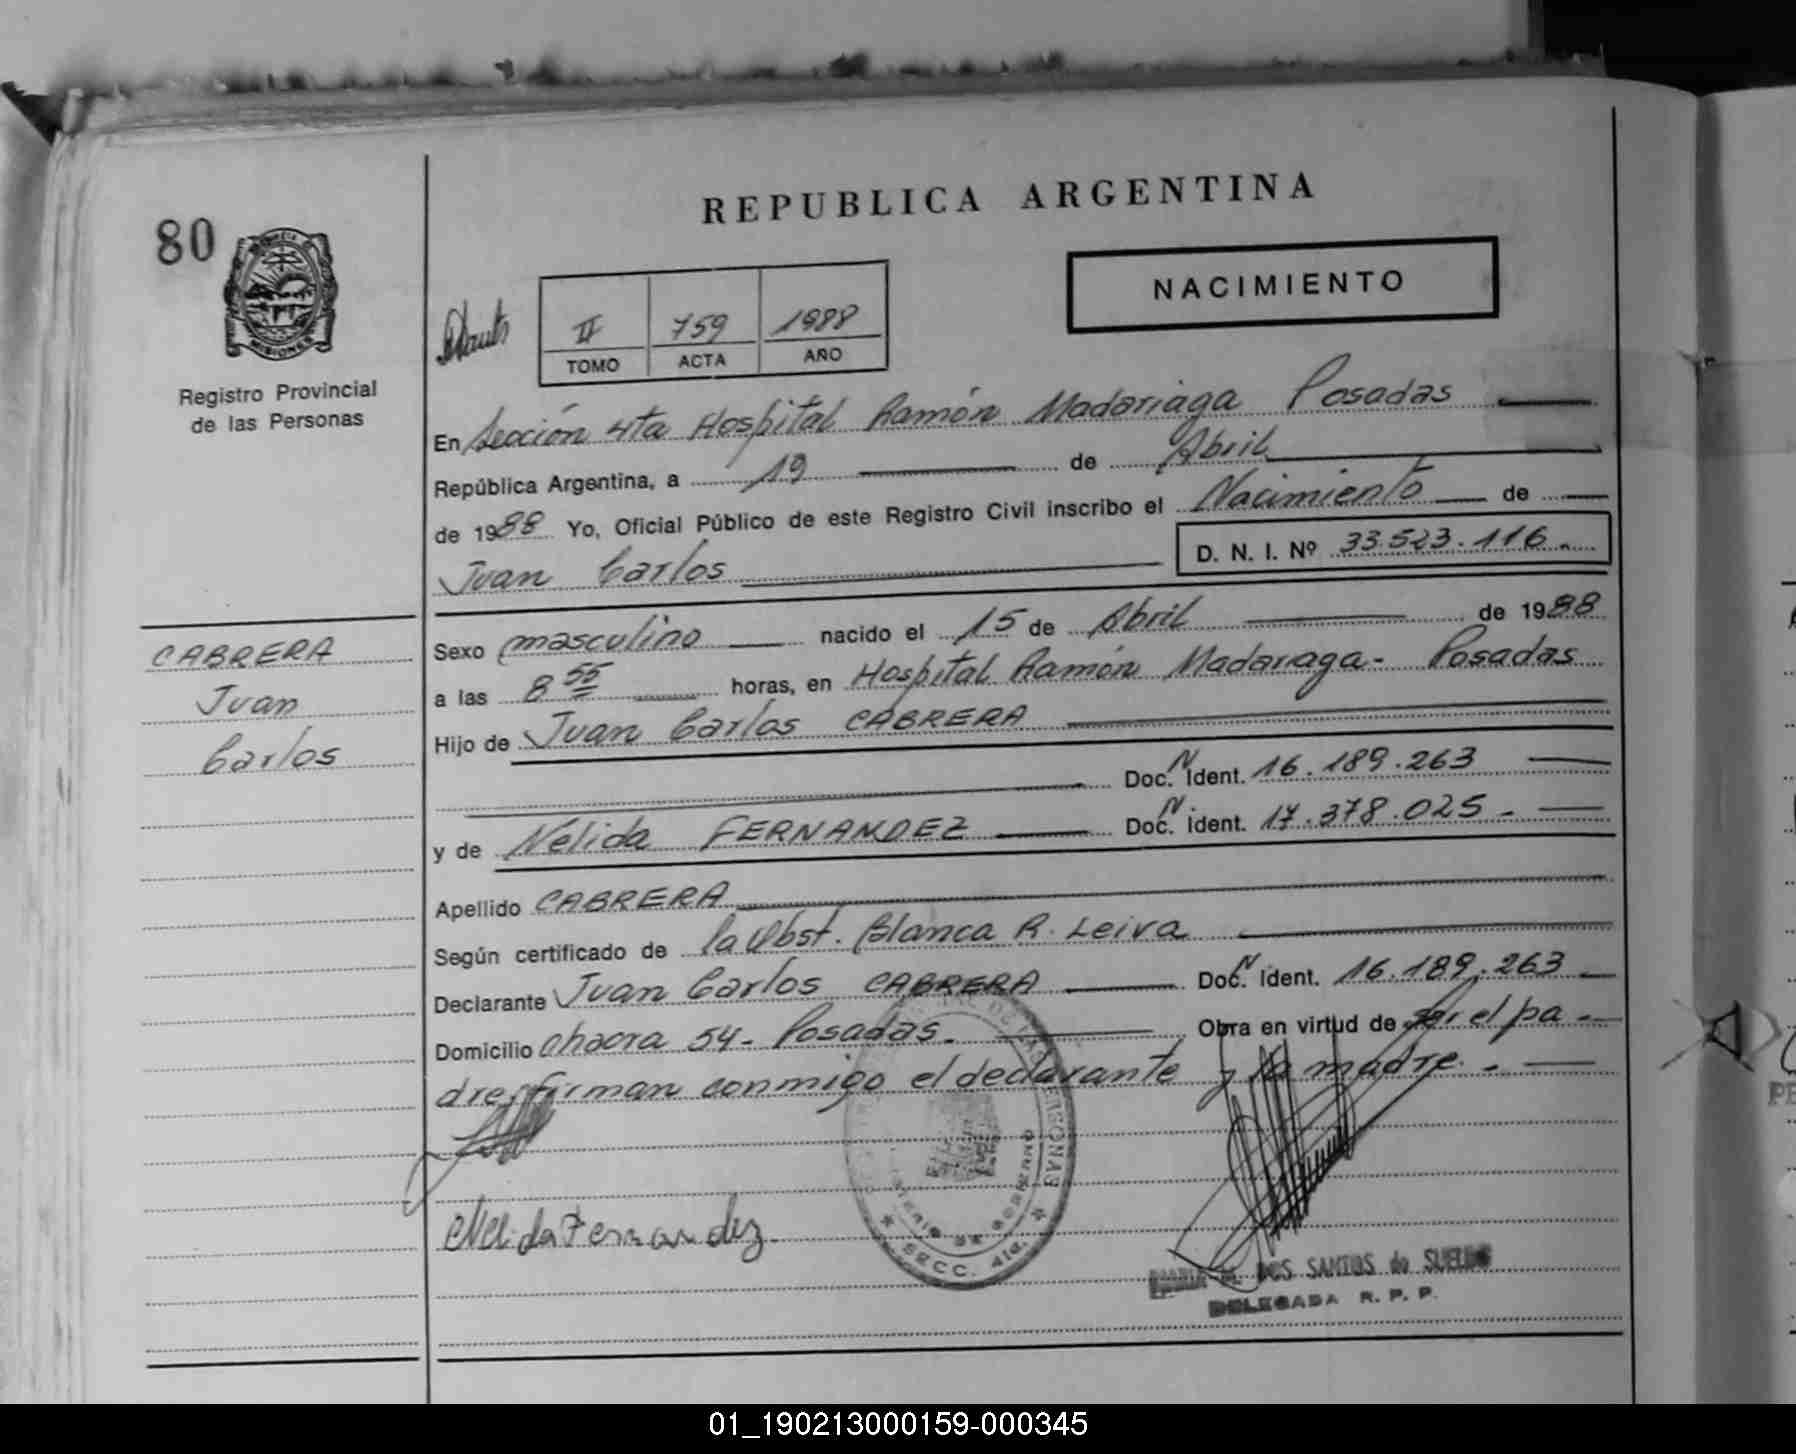 REPUBLICA ARGENTINA
80
NACIMIENTO
MISIONES
Registro Provincial
de las Personas
II 759 1988
TOMO ACTA AÑO
En Sección 4ta Hospital Ramón Madariaga Posadas
República Argentina, a 19 de Abril
de 1988 Yo, Oficial Público de este Registro Civil inscribo el Nacimiento de
Juan Carlos
D. N. I. Nº 33.523.116.-
CABRERA
Juan
Carlos
Sexo masculino nacido el 15 de Abril de 1988
a las 8 55 horas, en Hospital Ramón Madariaga - Posadas
Hijo de Juan Carlos CABRERA
Doc. N Ident. 16.189.263
y de Nelida FERNANDEZ Doc. N Ident. 17.378.025.-
Apellido CABRERA
Según certificado de la Obst. Blanca R. Leiva
Declarante Juan Carlos CABRERA Doc. N Ident. 16.189.263
Domicilio chacra 54- Posadas.- Obra en virtud de ser el pa-
dre, firman conmigo el declarante y la madre.-
Nelida Fernandez.
DE LAS PERSONAS
SECC. 4ta.
DOS SANTOS de
DELEGADA R. P. P.
01_190213000159-000345